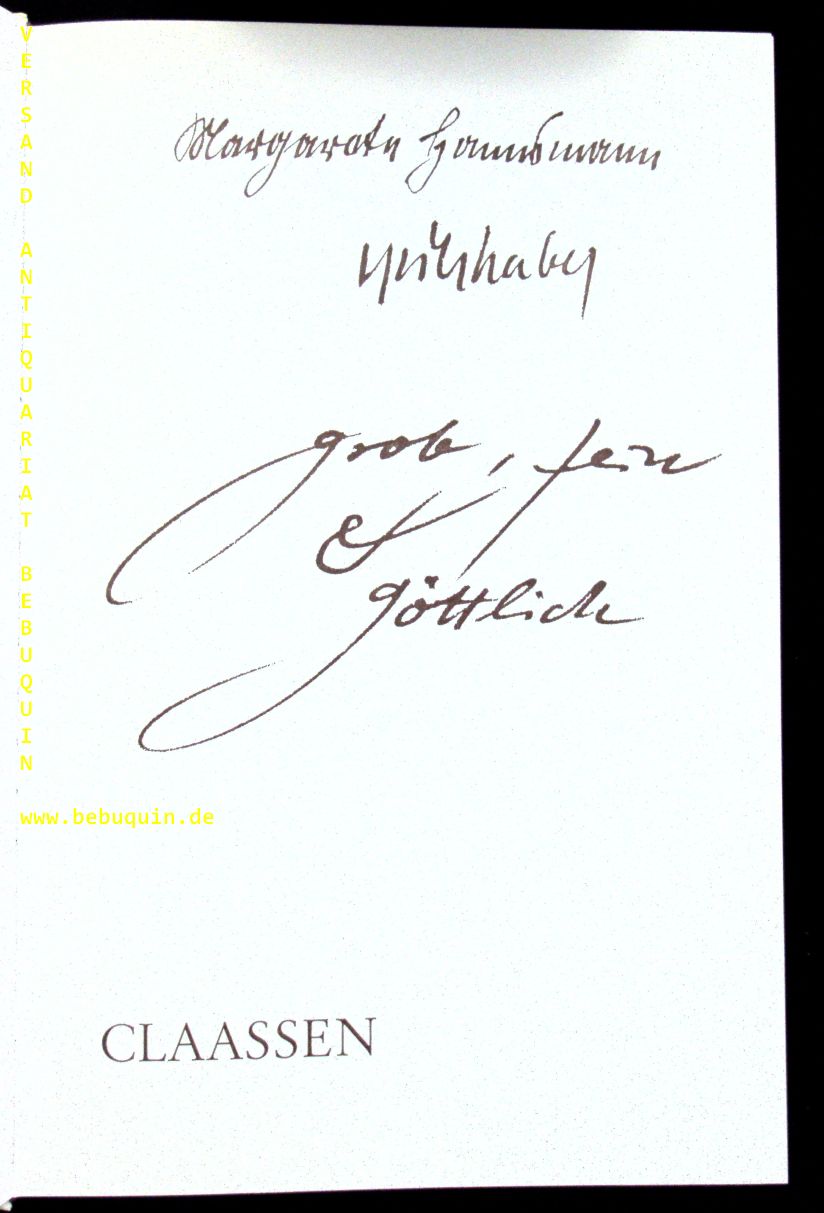 Margarete Hannsmann
grieshaber
grob, fein
&
göttlich
CLAASSEN
VERSAND ANTIQUARIAT BEBUQUIN
www.bebuquin.de